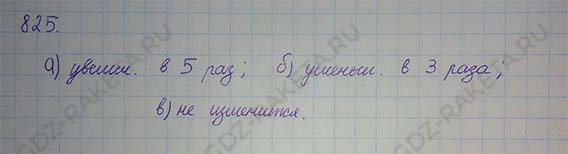 825.
а) увелич. в 5 раз; б) уменьш. в 3 раза;
в) не изменится.
GDZ-RAKETA.RU